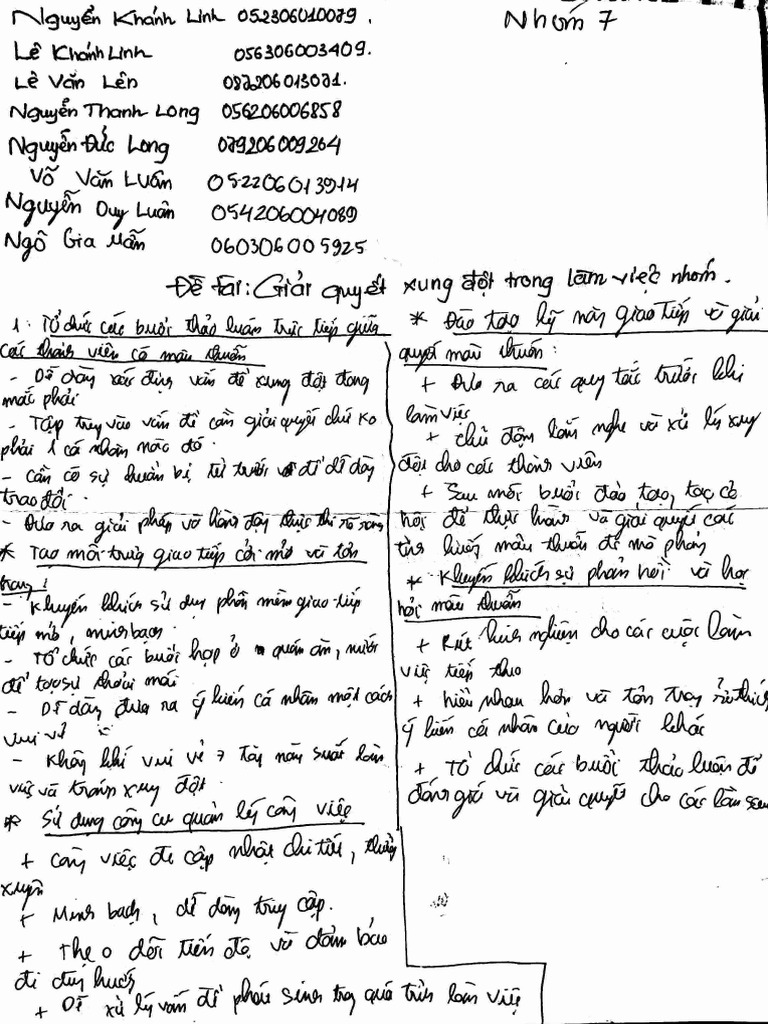 Nguyễn Khánh Linh 052306010079.
Nhóm 7
Lê Khánh Linh 056306003409.
Lê Văn Lên 087206013071.
Nguyễn Thanh Long 056206006858
Nguyễn Đức Long 079206009264
Võ Văn Luân 052206013914
Nguyễn Duy Luân 054206004089
Ngô Gia Mẫn 060306005925
Đề tài: Giải quyết xung đột trong làm việc nhóm.
1: Tổ chức các buổi thảo luận trực tiếp giữa
các thành viên có mâu thuẫn
- Dễ dàng xác định vấn đề xung đột đang
mắc phải
- Tập trung vào vấn đề cần giải quyết chứ ko
phải 1 cá nhân nào đó.
- Cần có sự chuẩn bị từ trước để dễ dàng
trao đổi.
- Đưa ra giải pháp và hành động thực thi rõ ràng
* Tạo môi trường giao tiếp cởi mở và tôn
trọng:
- Khuyến khích sử dụng phần mềm giao tiếp
tiếp mở, minh bạch
- Tổ chức các buổi họp ở quán ăn, nước
để tạo sự thoải mái
- Dễ dàng đưa ra ý kiến cá nhân một cách
vui vẻ
- Không khí vui vẻ → tăng năng suất làm
việc và tránh xung đột.
* Sử dụng công cụ quản lý công việc
+ Công việc đc cập nhật chi tiết, thường
xuyên
+ Minh bạch, dễ dàng truy cập.
+ Theo dõi tiến độ và đảm bảo
đi đúng hướng
+ Dễ xử lý vấn đề phát sinh trong quá trình làm việc
* Đào tạo kỹ năng giao tiếp và giải
quyết mâu thuẫn:
+ Đưa ra các quy tắc trước khi
làm việc
+ Chủ động lắng nghe và xử lý xung
đột cho các thành viên
+ Sau mỗi buổi đào tạo, tạo cơ
hội để thực hành và giải quyết các
tình huống mâu thuẫn đc mô phỏng
* Khuyến khích sự phản hồi và học
hỏi mâu thuẫn
+ Rút kinh nghiệm cho các cuộc làm
việc tiếp theo
+ hiểu nhau hơn và tôn trọng
ý kiến cá nhân của người khác
+ Tổ chức các buổi thảo luận để
đánh giá và giải quyết cho các lần sau